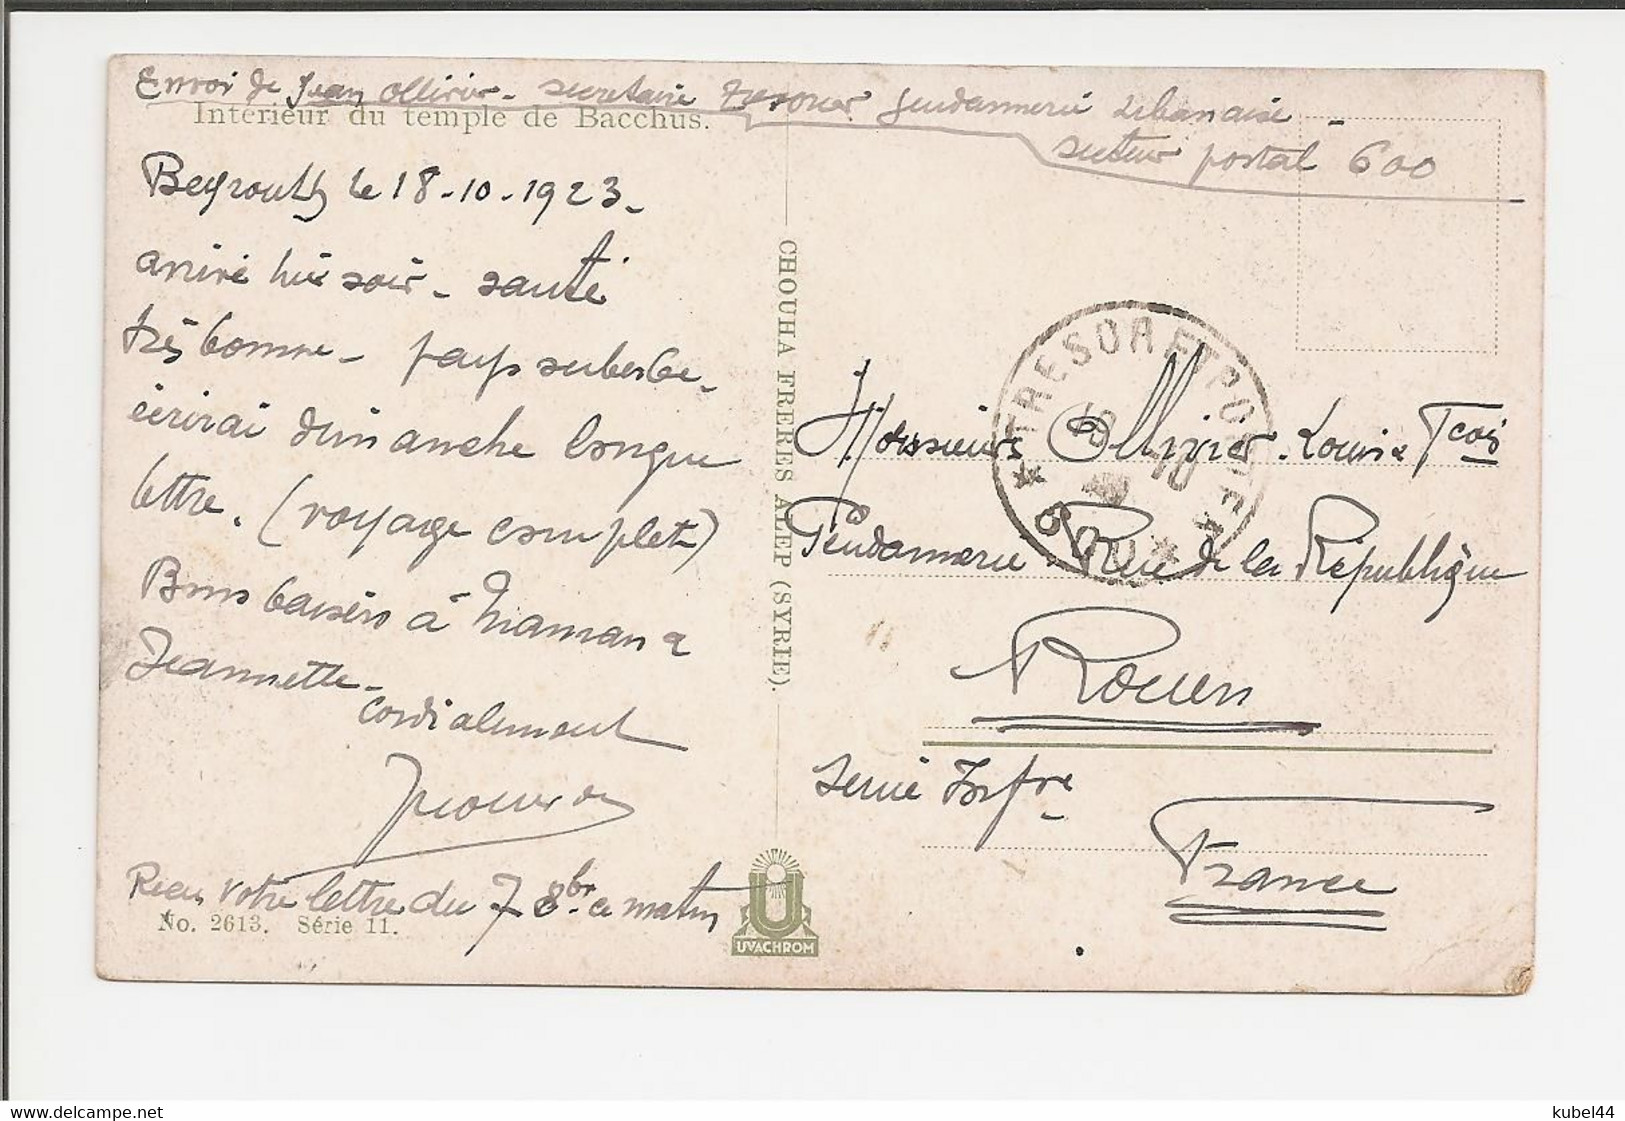 Envoi de Jean Ollivier - secrétaire Trésorier gendarmerie Libanaise -
secteur postal 600
Intérieur du temple de Bacchus.
Beyrouth le 18-10-1923 -
arrivé hier soir - santé
très bonne - pays superbe -
écrirai dimanche longue
lettre. (voyage complet)
Bons baisers à Maman &
Jeannette -
cordialement
Reçu votre lettre du 7 8bre ce matin
No. 2613. Série 11.
CHOUHA FRERES ALEP (SYRIE).
UVACHROM
TRESOR ET POSTES
600
Monsieur Ollivier Louis Fcois
Gendarmerie Rue de la République
Rouen
France
kubel44
www.delcampe.net